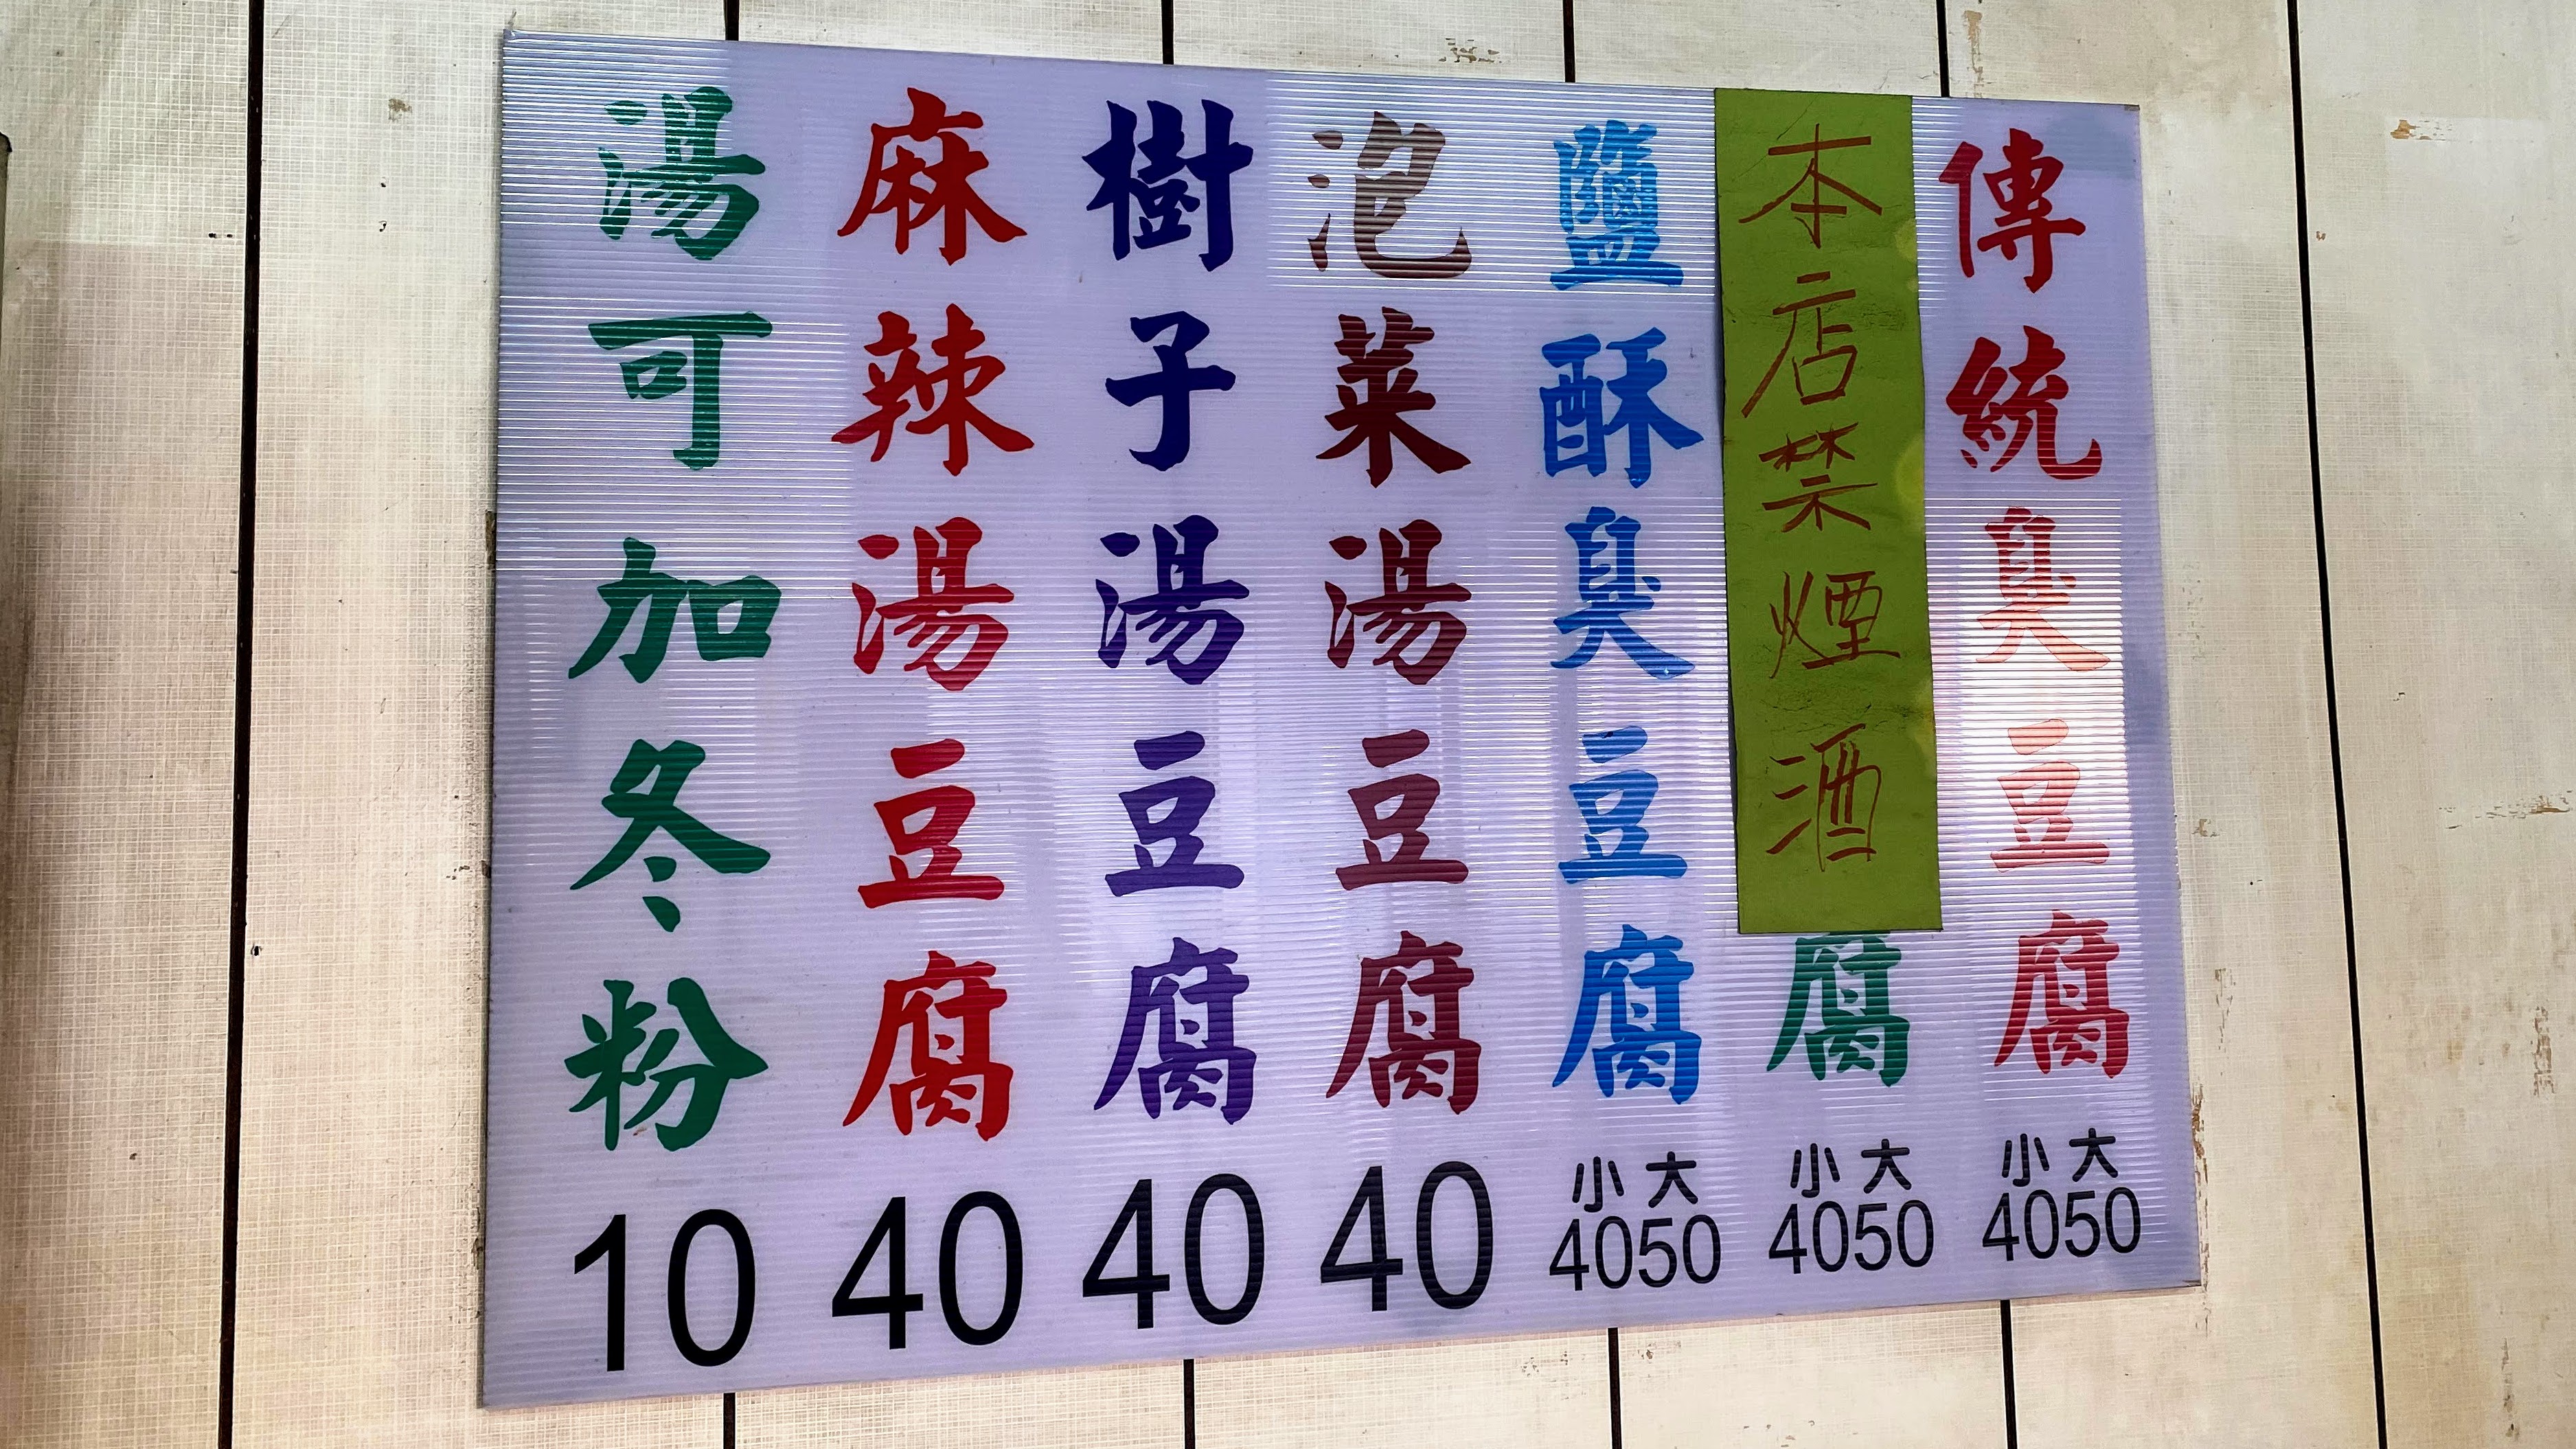 傳統臭豆腐
小 大
4050
本店禁煙酒
腐
小 大
4050
鹽酥臭豆腐
小 大
4050
泡菜湯豆腐
40
樹子湯豆腐
40
麻辣湯豆腐
40
湯可加冬粉
10